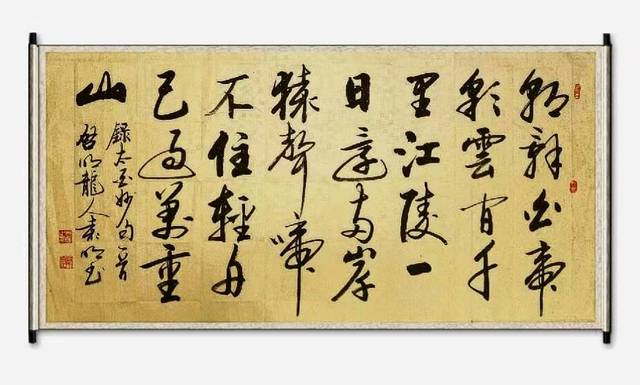 朝辭白帝
彩雲間千
里江陵一
日還兩岸
猿聲啼
不住輕舟
已過萬重
山
錄太白妙句一首
啓明龍人袁明書